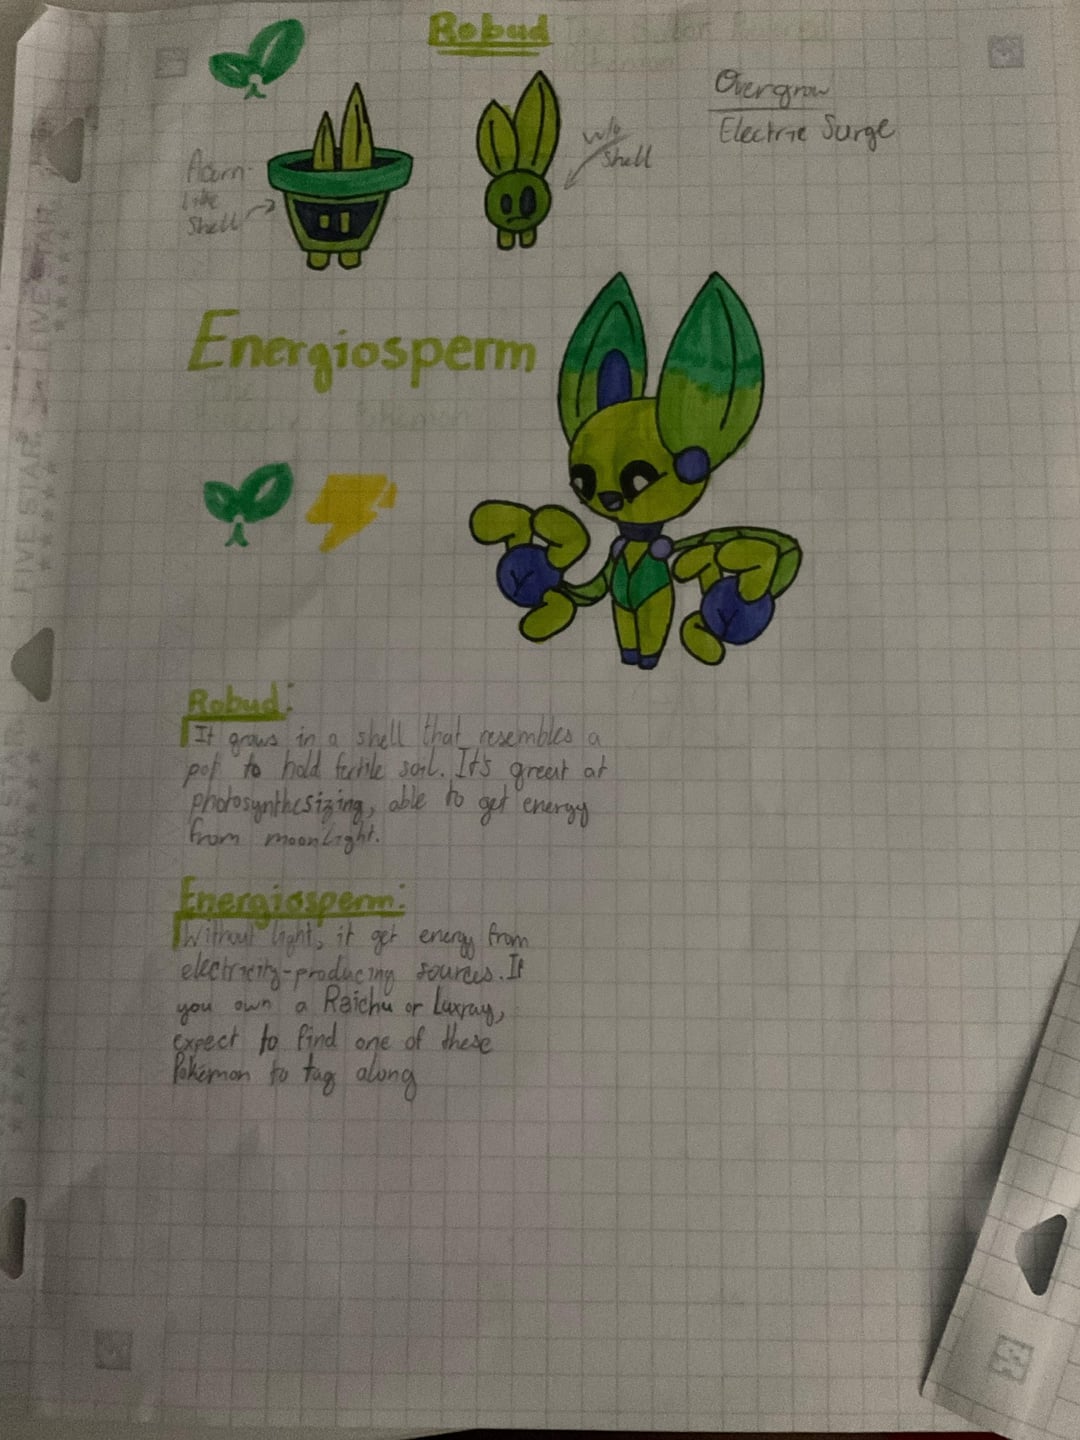 Robud
Overgrow
Electric Surge
Acorn-
like
shell
w/o
shell
Energiosperm
The
Robud:
It grows in a shell that resembles a
pot to hold fertile soil. It's great at
photosynthesizing, able to get energy
from moonlight.
Energiosperm:
Without light, it get energy from
electricity-producing sources. If
you own a Raichu or Luxray,
expect to find one of these
Pokémon to tag along
FIVE STAR
FIVE STAR
FIVE STAR